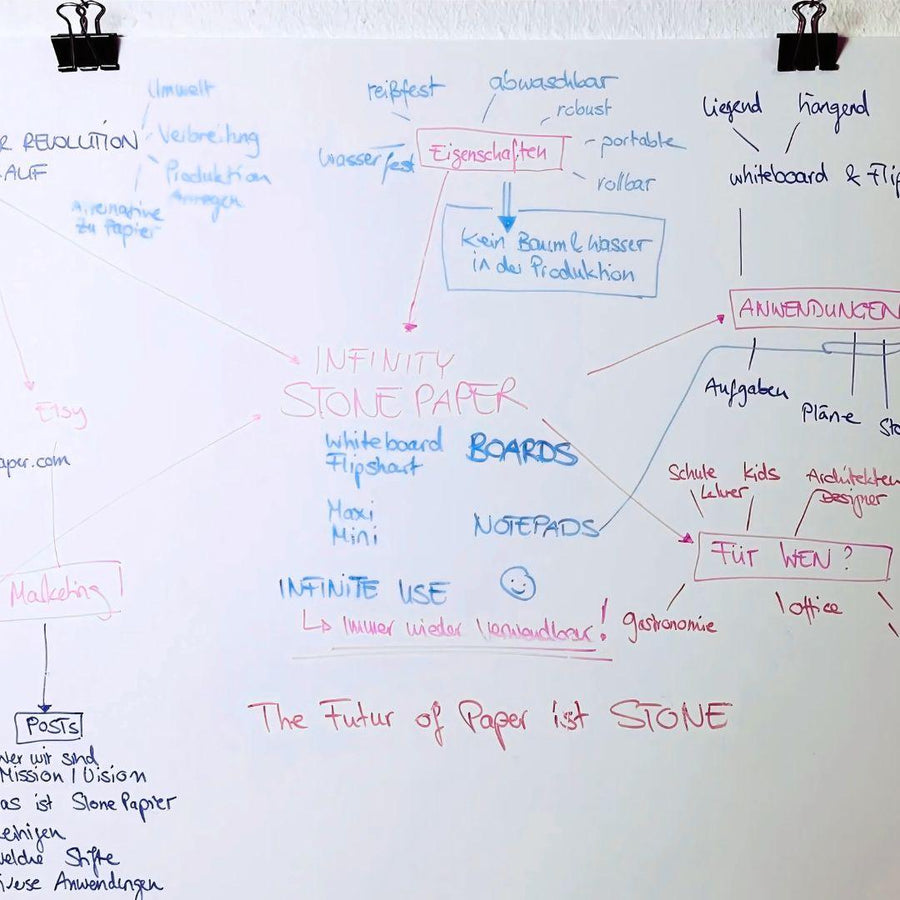 R REVOLUTION
AUF
Umwelt
Verbreitung
Produktion
Anregen
Alternative
zu Papier
reißfest
abwaschbar
robust
portable
rollbar
wasserfest
Eigenschaften
Kein Baum & Wasser
in der Produktion
liegend hängend
whiteboard & Flip
ANWENDUNGEN
Aufgaben
Pläne
Sto
INFINITY
STONE PAPER
whiteboard
Flipshart
BOARDS
Maxi
Mini
NOTEPADS
INFINITE USE
↳ Immer wieder Verwendbar!
Schule
Lehrer
Kids
Architekten
Designer
FÜR WEN?
gastronomie
office
Etsy
aper.com
Marketing!
POSTS
Wer wir sind
Mission / Vision
as ist Stone Papier
einigen
welche Stifte
iverse Anwendungen
The Futur of Paper ist STONE